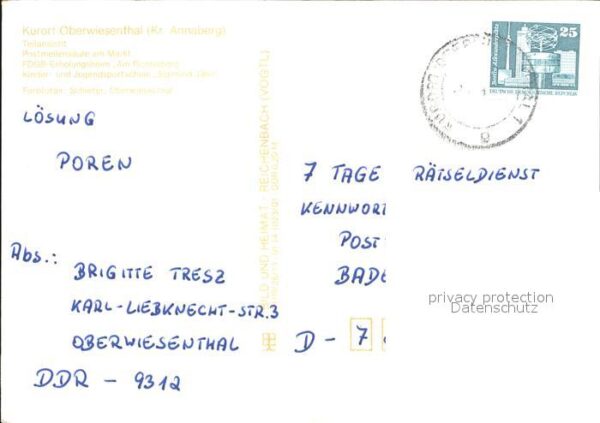 Kurort Oberwiesenthal (Kr. Annaberg)
Teilansicht
Postmeilensäule am Markt
FDGB-Erholungsheim „Am Fichtelberg“
Kinder- und Jugendsportschule
Farbfotos: Schiefer, Oberwiesenthal
LÖSUNG
POREN
Abs.:
BRIGITTE TRESZ
KARL-LIEBKNECHT-STR.3
OBERWIESENTHAL
DDR - 9312
BILD UND HEIMAT · REICHENBACH (VOGTL)
25
DEUTSCHE DEMOKRATISCHE REPUBLIK
7 TAGE RÄTSELDIENST
KENNWORT
POST
BADE
D - 7
privacy protection
Datenschutz